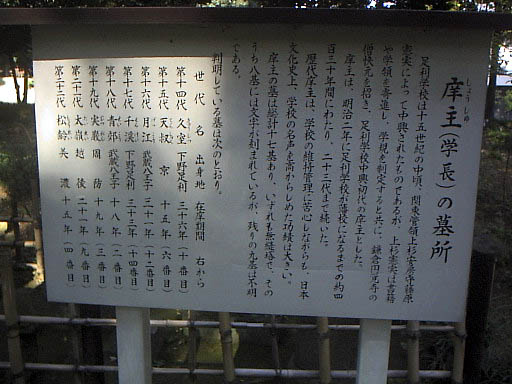 しょうしゅ
庠主(学長)の墓所
足利学校は十五世紀の中頃、関東管領上杉安房守藤原
憲実によって中興されたものであるが、上杉憲実は書籍
や学領を寄進し、学規を制定すると共に、鎌倉円覚寺の
僧快元を招き、足利学校中興初代の庠主とした。
庠主は、明治二年に足利学校が藩校になるまでの約四
百三十年間にわたり、二十三代まで続いた。
歴代庠主は、学校の維持管理に苦心しながらも、日本
文化史上、学校の名声を高からしめた功績は大きい。
庠主の墓は総計十七基あり、いずれも無縫塔で、その
うち八基には文字が刻まれているが、残りの九基は不明
である。
判明している墓は次のとおり。
世代 名 出身地 在庠期間 右から
第十四代 久室 下野足利 三十六年(十一番目)
第十五代 天叔 京 十五年(六番目)
第十六代 月江 武蔵八王子 三十一年(十三番目)
第十七代 千渓 下野足利 三十三年(十四番目)
第十八代 青郊 武蔵八王子 十八年(二番目)
第十九代 実巌 周防 十九年(三番目)
第二十代 太嶺 越後 二十一年(九番目)
第二十二代 松齢 美濃 十五年(四番目)